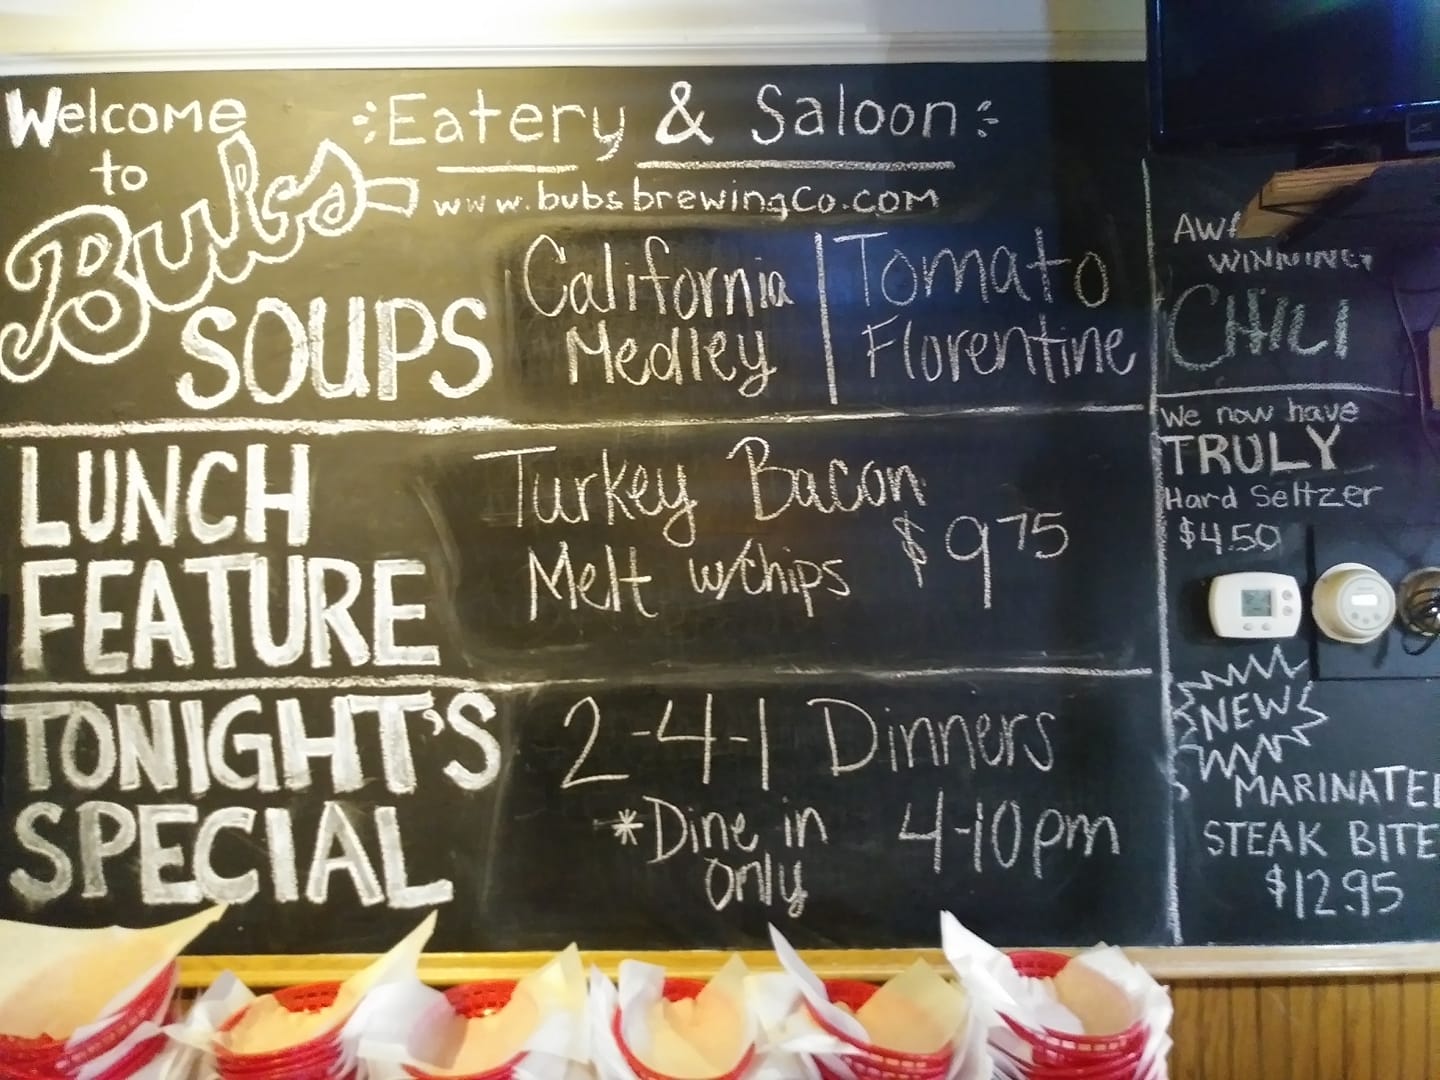 Welcome
to
Bubs
Eatery & Saloon
www.bubsbrewingCo.com
SOUPS
California
Medley
Tomato
Florentine
LUNCH
FEATURE
Turkey Bacon
Melt w/chips $975
TONIGHT'S
SPECIAL
2-4-1 Dinners
*Dine in
only
4-10pm
WINNING
CHILI
We now have
TRULY
Hard Seltzer
$4.50
NEW
MARINATE
STEAK BITE
$12.95